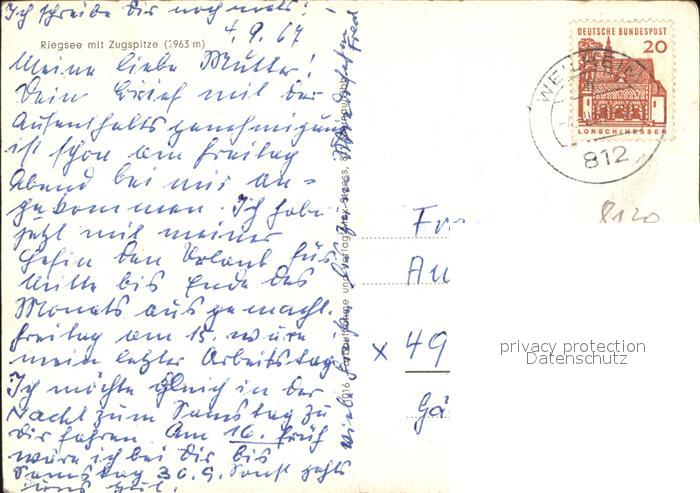 Ich schreibe Dir noch mals! -
4.9.67
Riegsee mit Zugspitze (2963 m)
Meine liebe Mutter!
Dein Brief mit der
Aufenthaltsgenehmigung
ist schon am Freitag
Abend bei mir an-
gekommen. Ich habe
jetzt mit meiner
Chefin den Urlaub für
Mitte bis Ende des
Monats ausgemacht.
Freitag am 15. wäre
mein letzter Arbeitstag.
Ich möchte gleich in der
Nacht zum Samstag zu
Dir fahren. Am 16. früh
wäre ich bei Dir bis
Samstag 30.9. Sonst gehts
uns gut.
DEUTSCHE BUNDESPOST
20
LORSCH/HESSEN
WEILHEIM
812
8120
Fr
An
x 49
Gä
privacy protection
Datenschutz